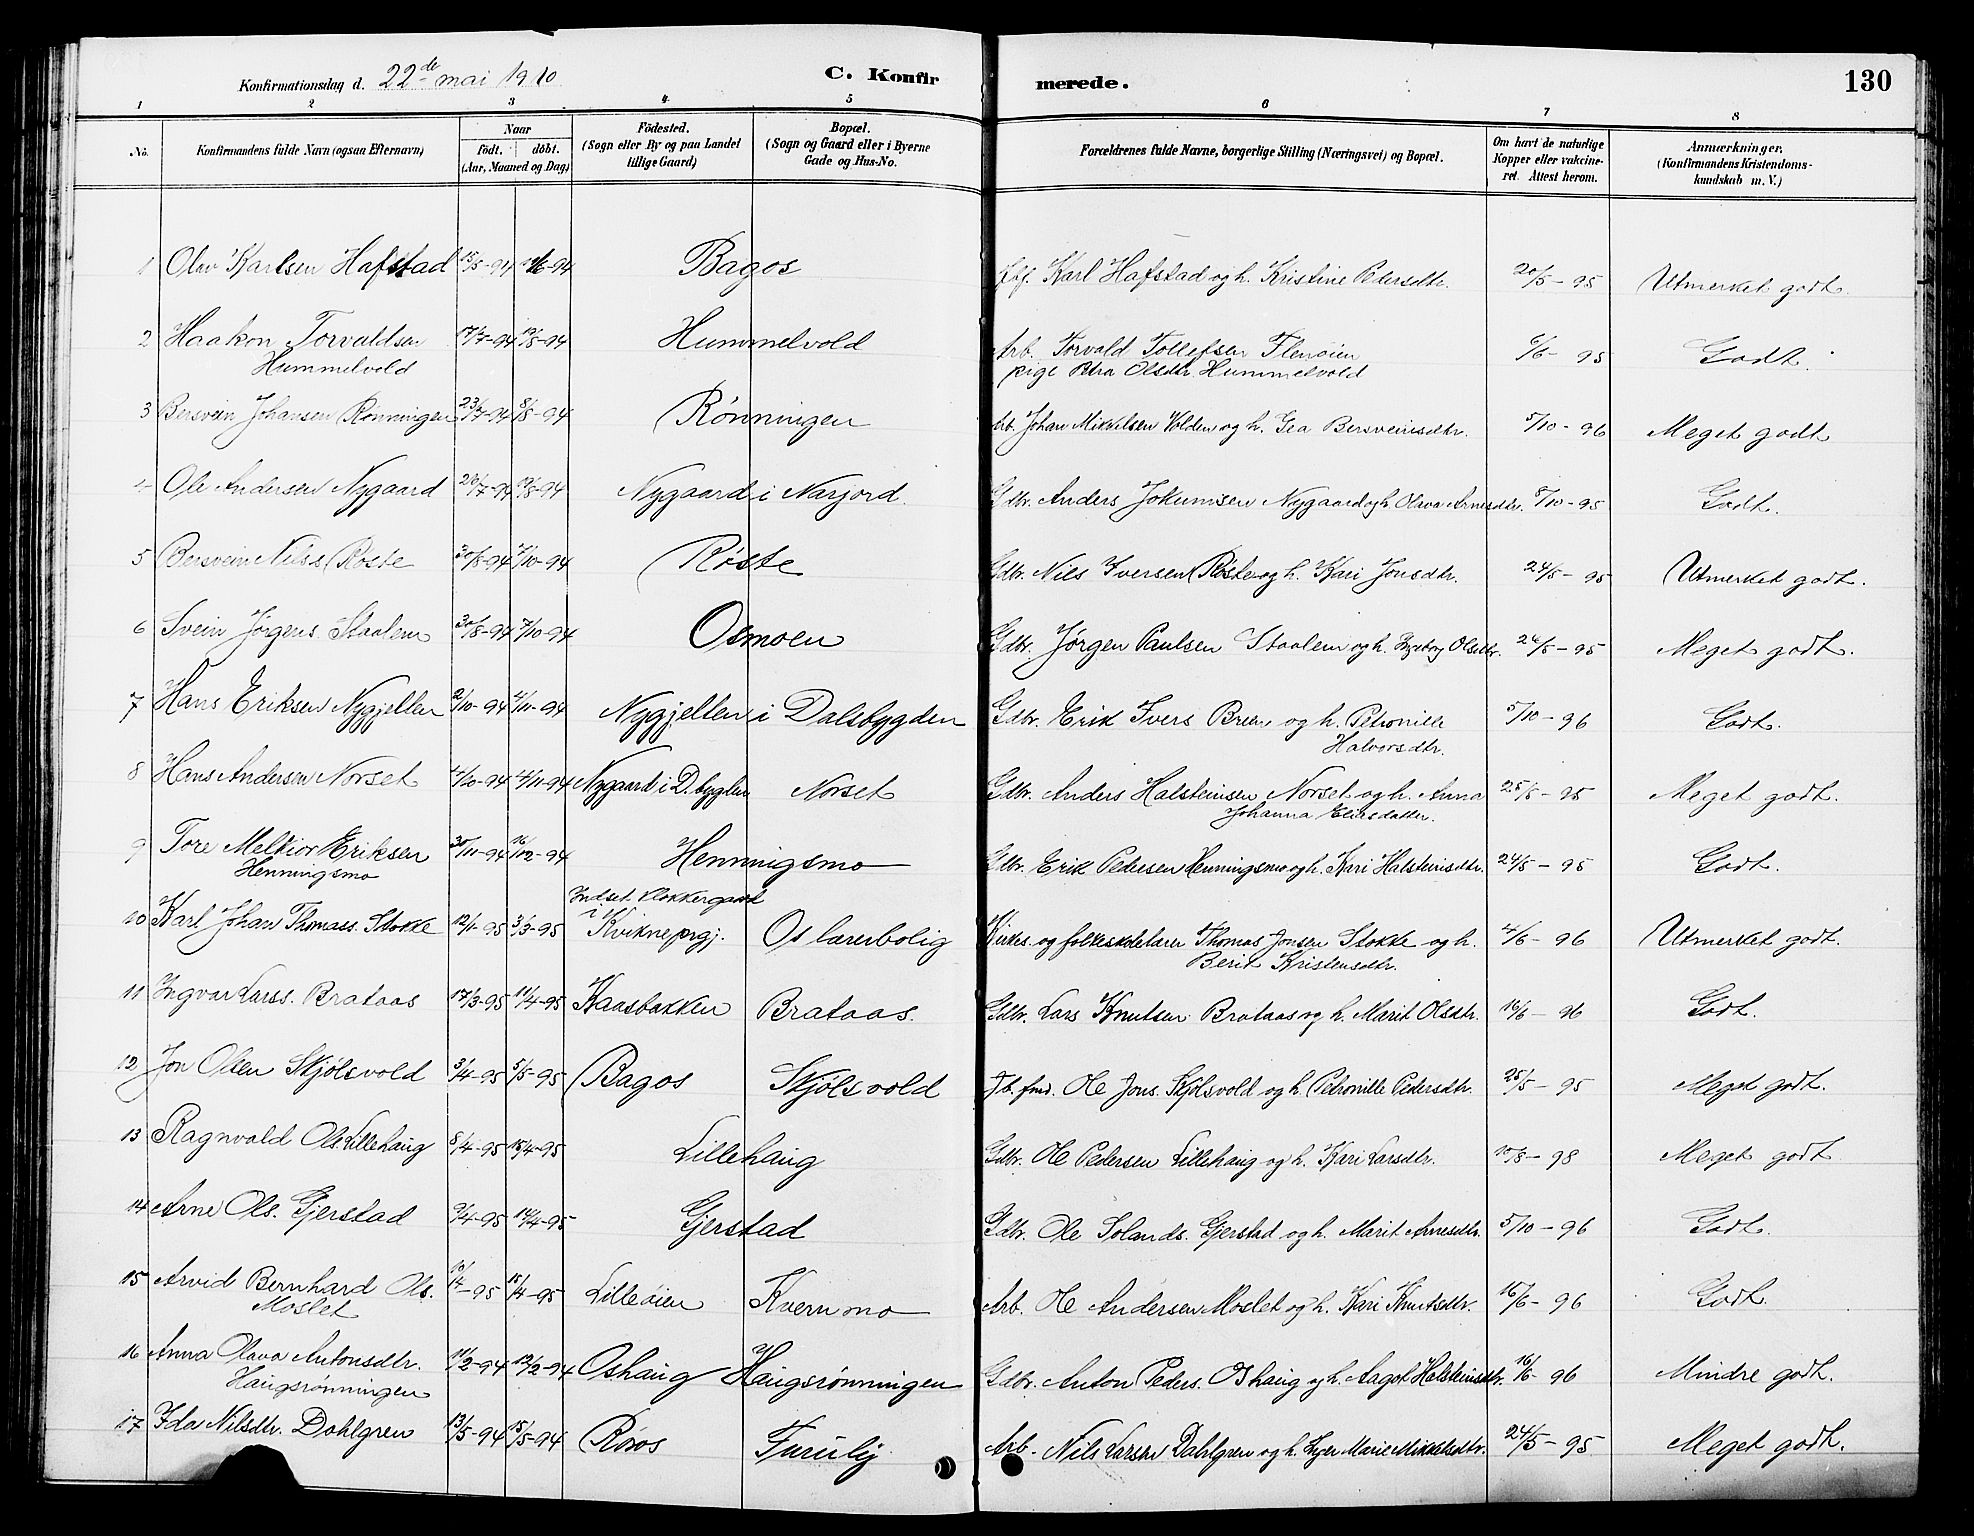 Konfirmationsdag d. 22de mai 1910. C. Konfir merede. 130
1 2 3 4 5 6 7 8
No. Konfirmandens fulde Navn (ogsaa Efternavn) Naar födt. döbt. (Aar, Maaned og Dag) Födested. (Sogn eller By og paa Landet tillige Gaard) Bopæl. (Sogn og Gaard eller i Byerne Gade og Hus-No. Forældrenes fulde Navne, borgerlige Stilling (Næringsvei) og Bopæl. Om havt de naturlige Kopper eller vakcineret. Attest herom. Anmærkninger, (Konfirmandens Kristendomskundskab m. V.)
1 Olav Karlsen Hafstad 15/5-94 Bagos Karl Hafstad og h. Kristine Pedersdtr. 20/5-95 Utmerket godt.
2 Haakon Torvaldsen 17/7-94 19/8-94 Hummelvold Arb. Torvald Tollefsen Flenøien 6/6-95 Godt.
Hummelvold pige Petra Olsdtr. Hummelvold
3 Bersvein Johansen Rønningen 23/7-94 8/8-94 Rønningen Arb. Johan Mikkelsen Volden og h. Gea Bersveinsdtr. 5/10-96 Meget godt
4 Ole Andersen Nygaard 26/7-94 19/8-94 Nygaard i Narjord. Gdbr. Anders Jokumsen Nygaard og h. Olava Arnesdtr. 5/10-95 Godt.
5 Bersvein Nilss. Røste 30/8-94 7/10-94 Røste Gdbr. Nils Iversen Røste og h. Kari Jonsdtr. 24/5-95 Utmerket godt.
6 Svein Jørgens. Staalem 30/8-94 7/10-94 Osmoen Gdbr. Jørgen Paulsen Staalem og h. Ingeborg Olsdtr. 24/5-95 Meget godt.
7 Hans Eriksen Nygjelten 2/10-94 4/11-94 Nygjelten i Dalsbygden Gdbr. Erik Ivers. Breen og h. Petronille 5/10-96 Godt.
Halvorsdtr.
8 Hans Andersen Norset 4/10-94 4/11-94 Nygaard i D.bygden Norset Gdbr. Anders Halsteinsen Norset og h. Anna 25/5-95 Meget godt.
Johanna
9 Tore Melkior Eriksen 30/11-94 16/12-94 Henningsmo Gdbr. Erik Pedersen Henningsmo og h. Kari Halsteinsdtr. 24/5-95 Godt.
Henningsmo
Indset klokkergaard
10 Karl Johan Thomass. Stokke 12/1-95 3/3-95 i Kvikne prgj. Os lærerbolig Kirkes. og folkeskolelærer Thomas Jonsen Stokke og h. 4/6-96 Utmerket godt.
Berit Kristensdtr.
11 Ingvar Larss. Brataas 17/3-95 11/4-95 Kaasbakken Brataas. Gdbr. Lars Knutsen Brataas og h. Marit Olsdtr. 16/6-96 Godt.
12 Jon Olsen Skjølsvold 3/4-95 5/5-95 Bagos Skjølsvold Jb. fmd. Ole Jons. Skjølsvold og h. Petronille Pedersdtr. 25/5-95 Meget godt.
13 Ragnvald Ols. Lillehaug 8/4-95 15/4-95 Lillehaug Gdbr. Ole Pedersen Lillehaug og h. Kari Larsdtr. 10/8-98 Meget godt.
14 Arne Ols. Gjerstad 9/4-95 14/4-95 Gjerstad Gdbr. Ole Gjerstad og h. Marit Arnesdtr. 5/10-96 Godt.
15 Arvid Bernhard Ols. 10/4-95 15/4-95 Lilleøien Kvernmo Arb. Ole Andersen Moslet og h. Kari Knutsdtr. 16/6-96 Godt.
Moslet
16 Anna Olava Antonsdtr. 11/2-94 12/2-94 Oshaug Haugsrønningen Gdbr. Anton Peders. Oshaug og h. Aagot Halsteinsdtr. 16/6-96 Mindre godt.
Haugsrønningen
17 Ida Nilsdtr. Dahlgren 13/5-94 15/5-94 Røros Furulij Arb. Nils Larsen Dahlgren og h. Marie Mikkelsdtr. 24/5-95 Meget godt.